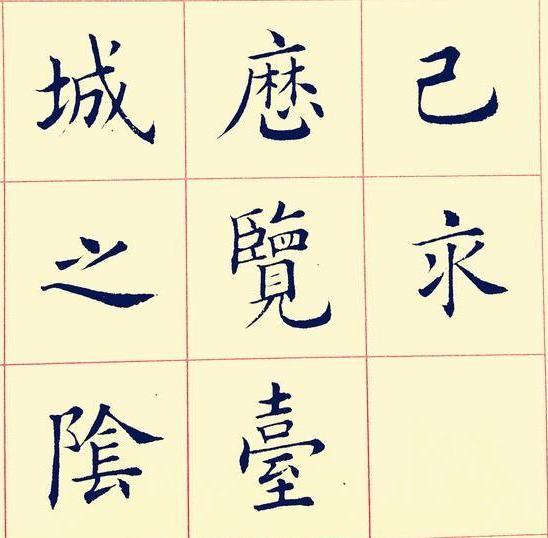 己亥
歷覽臺
城之陰